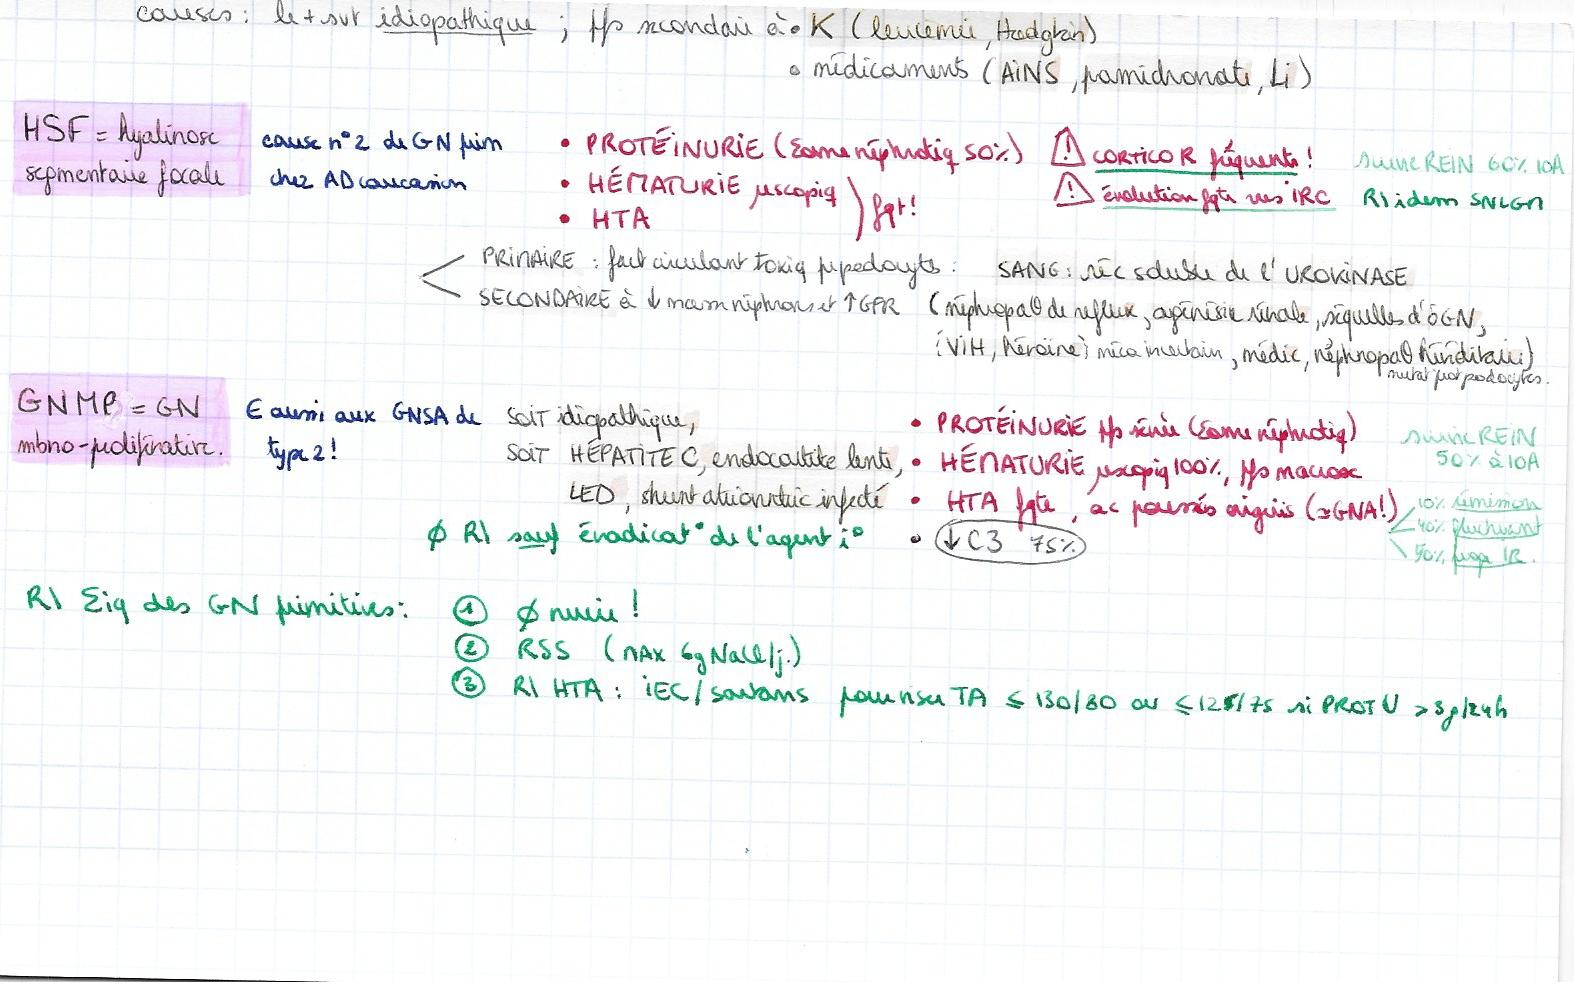 causes : le + svt idiopathique ; pfs secondaire à • K (leucémie, Hodgkin)
• médicaments (AINS, pamidronate, Li)
HSF = hyalinose segmentaire focale
cause n°2 de GN prim
chez AD caucasien
• PROTÉINURIE (Σome néphrotiq 50%)
• HÉMATURIE µscopiq
• HTA
fqt !
⚠ CORTICO R fréquente !
⚠ évolution fqte vers IRC
survie REIN 60% 10A
R\ idem SNLGM
PRIMAIRE : fact circulant toxiq pr podocyts : SANG : réc soluble de l'UROKINASE
SECONDAIRE à ↓ mass néphrons et ↑ GPR (néphropaθ de reflux, agénésie rénale, séquelles d'õGN,
(VIH, héroïne) méca incertain, médic, néphropaθ héréditaire)
mutat° prot podocytes.
GNMP = GN
mbno-proliférative.
E aussi aux GNSA de
type 2 !
SOIT idiopathique,
SOIT HÉPATITE C, endocardite lente,
LED, shunt atrioventric infecté
Ø R\ sauf éradicat° de l'agent i°
• PROTÉINURIE pfs sévère (Σome néphrotiq)
• HÉMATURIE µscopiq 100%, pfs macrosc
• HTA fqte, ac poussées aiguës (≈GNA!)
• ↓ C3 75%
survie REIN
50% à 10A
10% rémission
40% fluctuant
50% progr IR.
R\ Σiq des GN primitives :
① Ø nucie !
② RSS (MAX 6g NaCl/j.)
③ R\ HTA : IEC/sartans pour viser TA ≤ 130/80 ou ≤ 125/75 si PROT U > 3g/24h